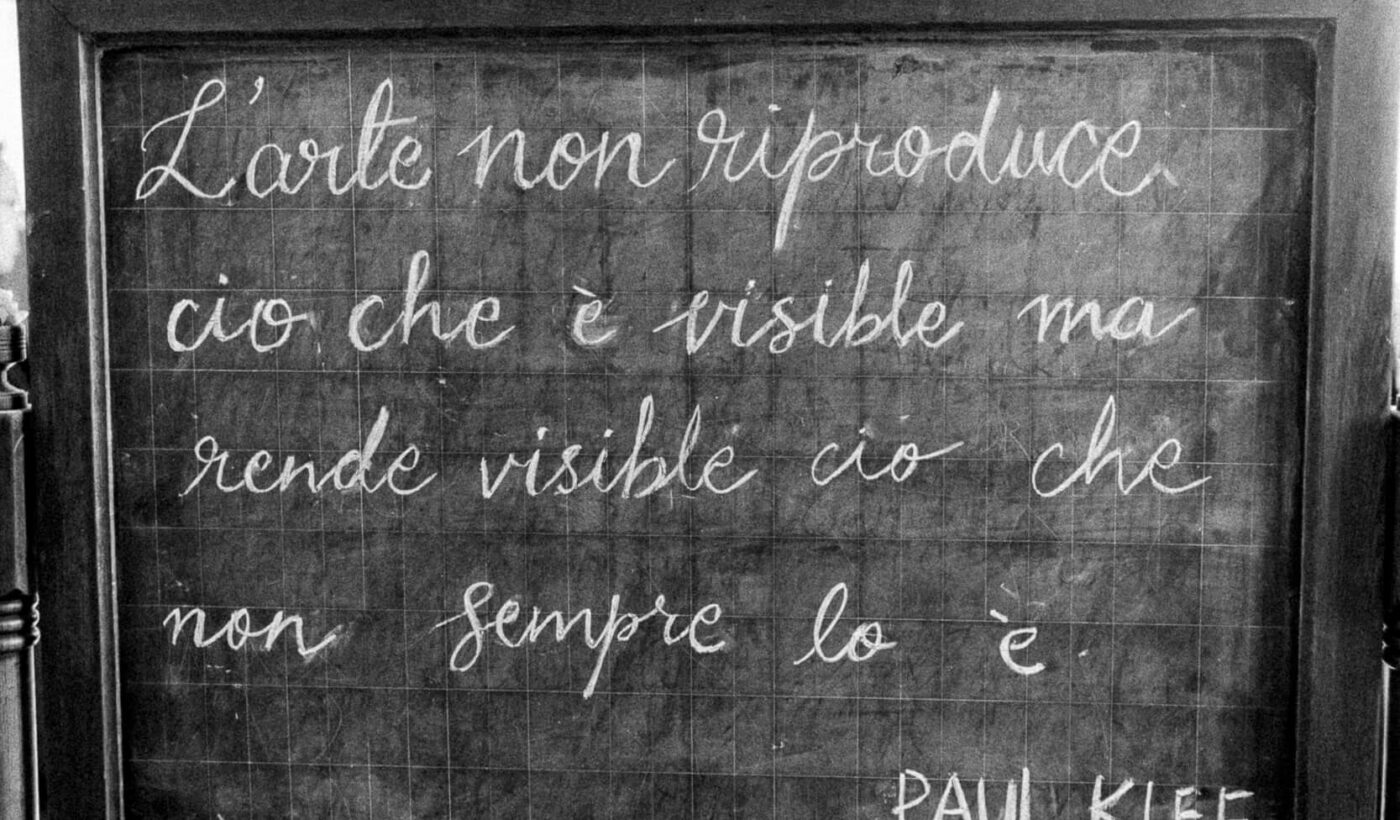 L'arte non riproduce
cio che è visible ma
rende visible cio che
non sempre lo è.
PAUL KLEE